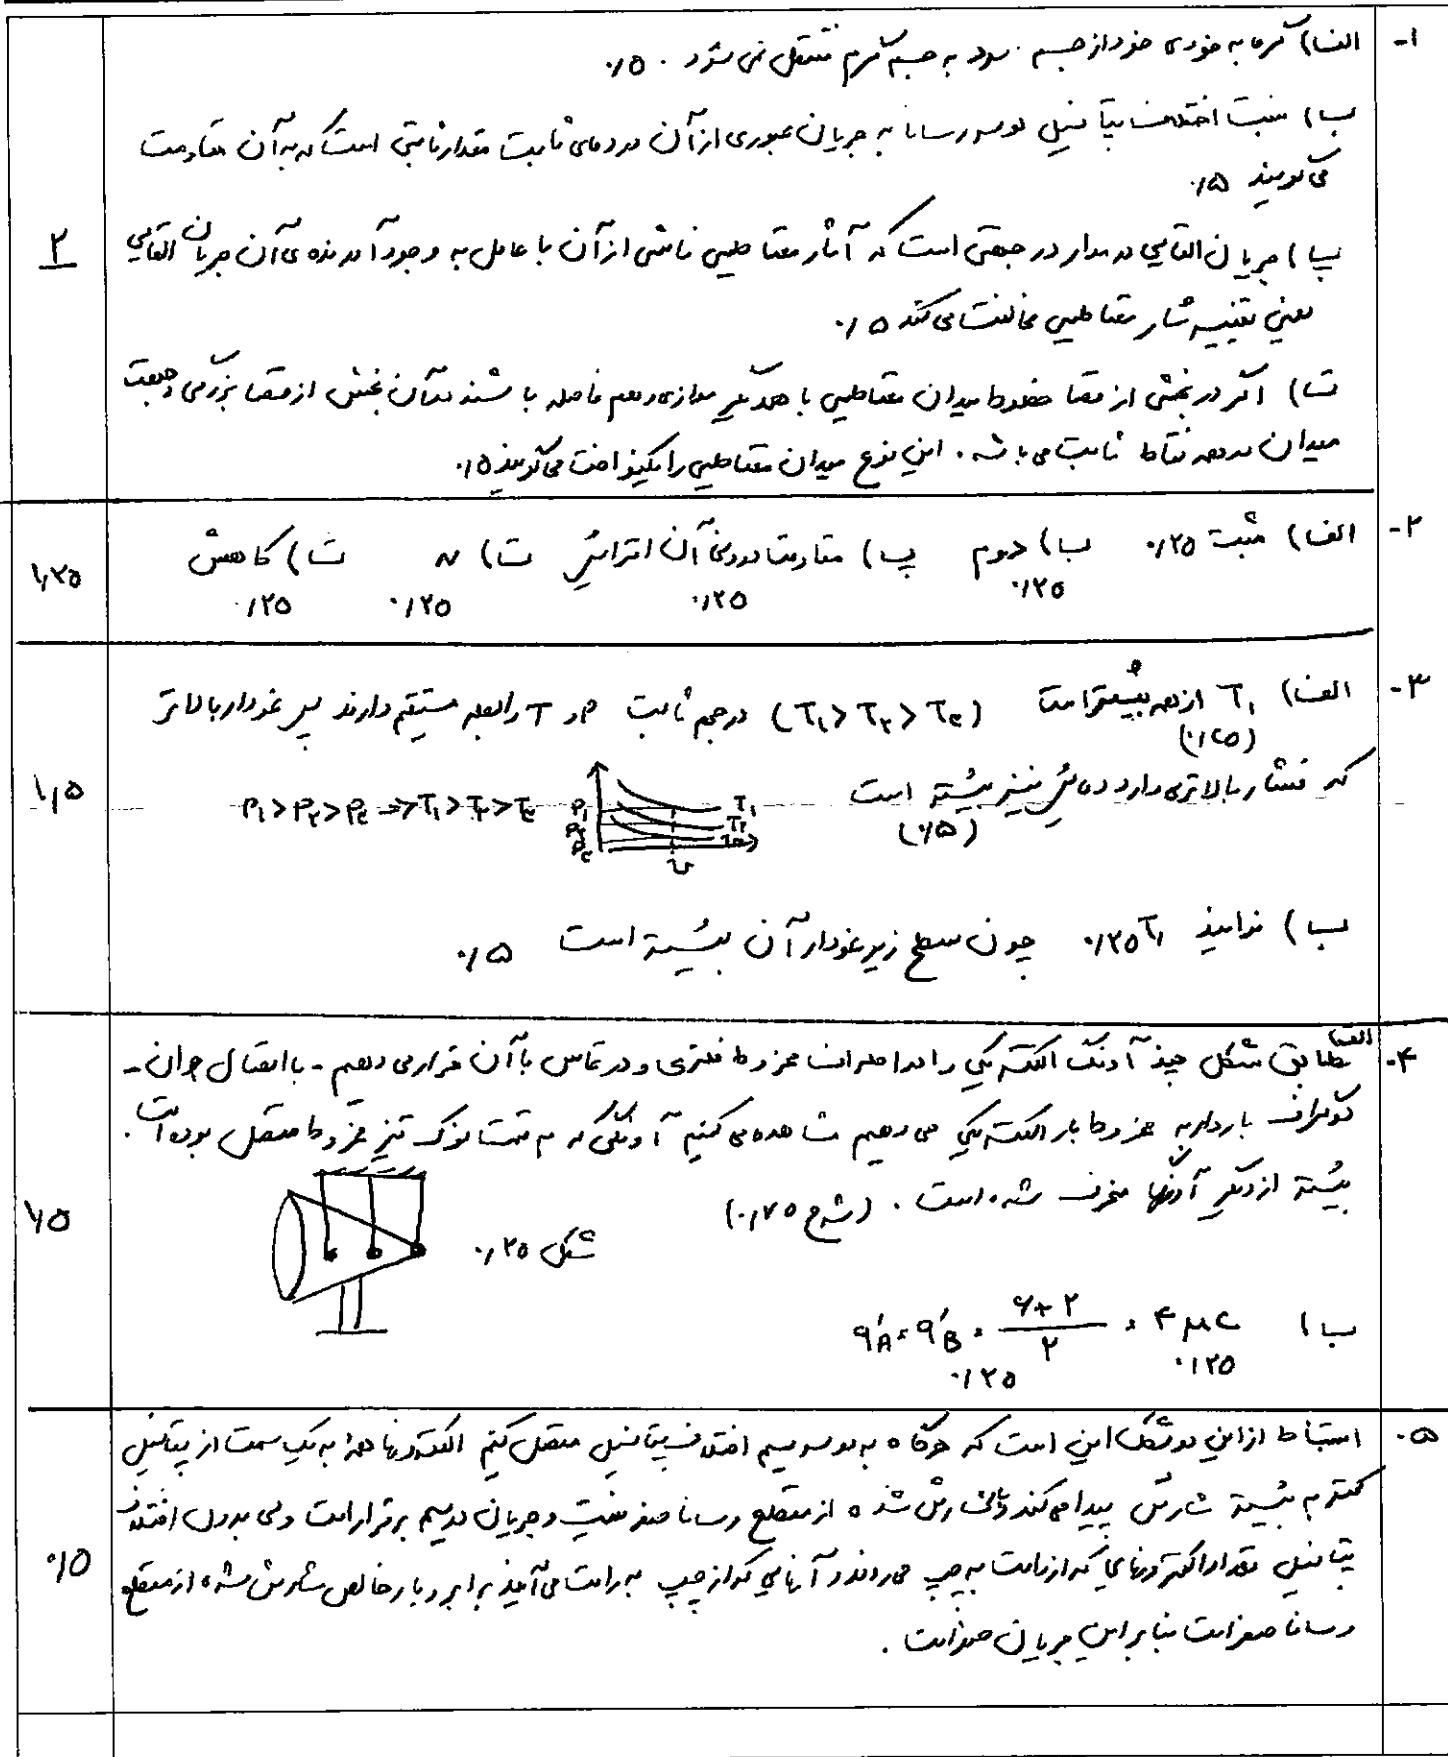 ۱- الف) گرما به خودی خود از جسم سرد به جسم گرم منتقل نمی شود . ۰/۵
ب) نسبت اختلاف پتانسیل دو سر رسانا به جریان عبوری از آن در دمای ثابت مقدار ثابتی است که به آن مقاومت
می گویند ۰/۵
پ) جریان القایی در مدار در جهتی است که آثار مغناطیسی ناشی از آن با عامل به وجود آورنده ی آن جریان القایی
یعنی تغییر شار مغناطیسی مخالفت می کند ۰/۵
۲
ت) اگر در بخشی از فضا خطوط میدان مغناطیسی با همدیگر موازی و هم فاصله باشند در آن بخش از فضا بزرگی و جهت
میدان در همه نقاط ثابت می باشد . این نوع میدان مغناطیسی را یکنواخت می گویند ۰/۵
۲- الف) مثبت ۰/۲۵ ب) دوم پ) مقاومت درونی آن افزایش ت) N ث) کاهش
۰/۲۵ ۰/۲۵ ۰/۲۵ ۰/۲۵
۱/۲۵
۳- الف) T₁ از همه بیشتر است (T₁>T₂>T₃) در حجم ثابت P و T رابطه مستقیم دارند پس نمودار بالاتر
(۰/۲۵)
که فشار بالاتری دارد دمایش نیز بیشتر است P₁>P₂>P₃ ⇒ T₁>T₂>T₃
(۰/۵)
P₁ P₂ P₃ T₁ T₂ T₃ V
۱/۵
ب) فرایند T₁ ۰/۲۵ چون سطح زیر نمودار آن بیشتر است ۰/۵
۴- الف) مطابق شکل چند آونگ الکتریکی را در اطراف مخروط فلزی و در تماس با آن قرار می دهیم - با اتصال وان -
دوگراف باردار به مخروط بار الکتریکی می دهیم مشاهده می کنیم آونگی که به قسمت نوک تیز مخروط متصل بوده است .
بیشتر از دیگر آونگها منحرف شده است . (شرح ۰/۷۵)
شکل ۰/۲۵
۱/۵
ب) q'A = q'B = (۶+۲)/۲ = ۴ μC
۰/۲۵ ۰/۲۵
۵- استنباط از این دو شکل این است که هرگاه به دو سر سیم اختلاف پتانسیل متصل کنیم الکترونها همه به یک سمت از پتانسیل
کمتر به بیشتر شارش پیدا می کند و بار شارش شده از مقطع رسانا صفر نیست و جریان در سیم برقرار است ولی بدون اختلاف
پتانسیل تعداد الکترونهایی که از راست به چپ می روند و آنهایی که از چپ به راست می آیند برابر و بار خالص شارش شده از مقطع
رسانا صفر است بنابراین جریان صفر است .
۰/۵